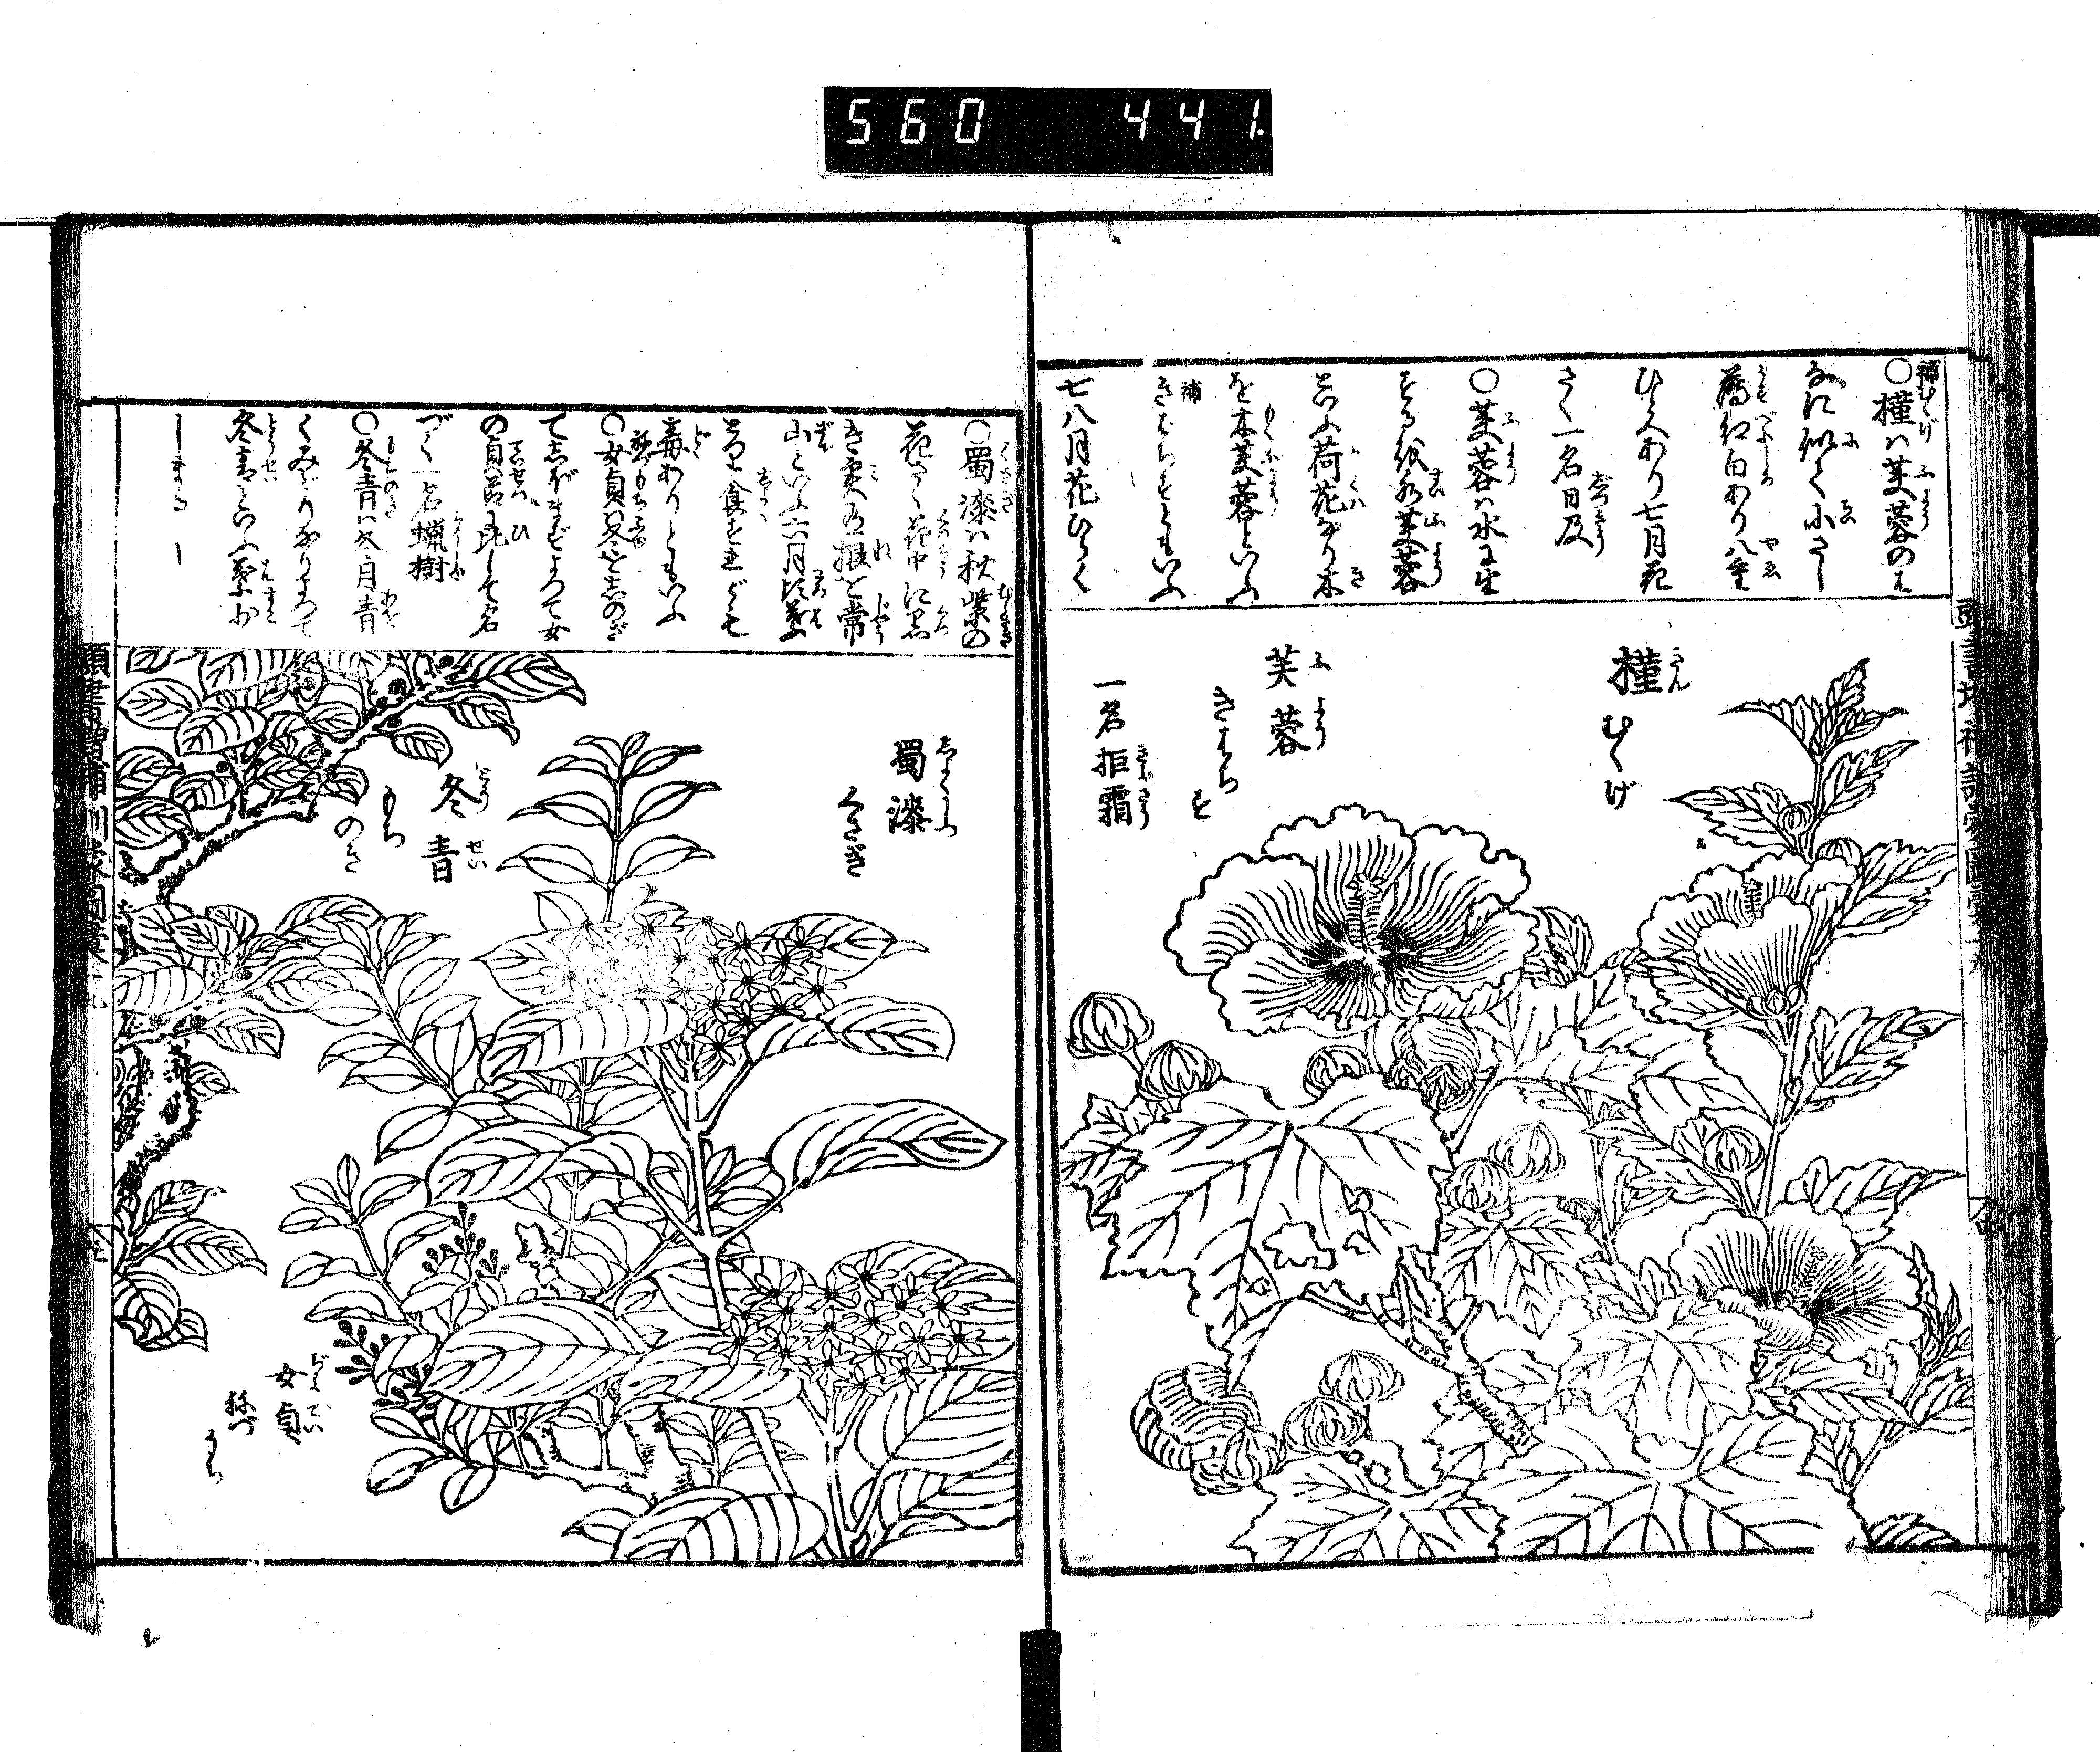 560 441
補
○槿は芙蓉のは
なに似て小さし
薄紅白あり八重
ひとへあり七月花
さく一名日及
○芙蓉は水に生
するを水芙蓉
といふ荷花なり木
を木芙蓉といふ
補
きはちすともいふ
七八月花ひらく
槿 きん むくげ
芙蓉 ふよう
きはちす
一名拒霜
○蜀漆は秋紫の
花さく花中に黒
き実あり根を常
山といふ六月に葉
毒ありともいふ
○女貞は冬をしのぎ
てしぼまずよつて女
の貞節に比して名
づく一名蠟樹
○冬青は冬月青
くみどりなりよつて
冬青といふ葉
蜀漆
くさぎ
冬青 とうせい
もちのき
女貞
頭書増補訓蒙図彙